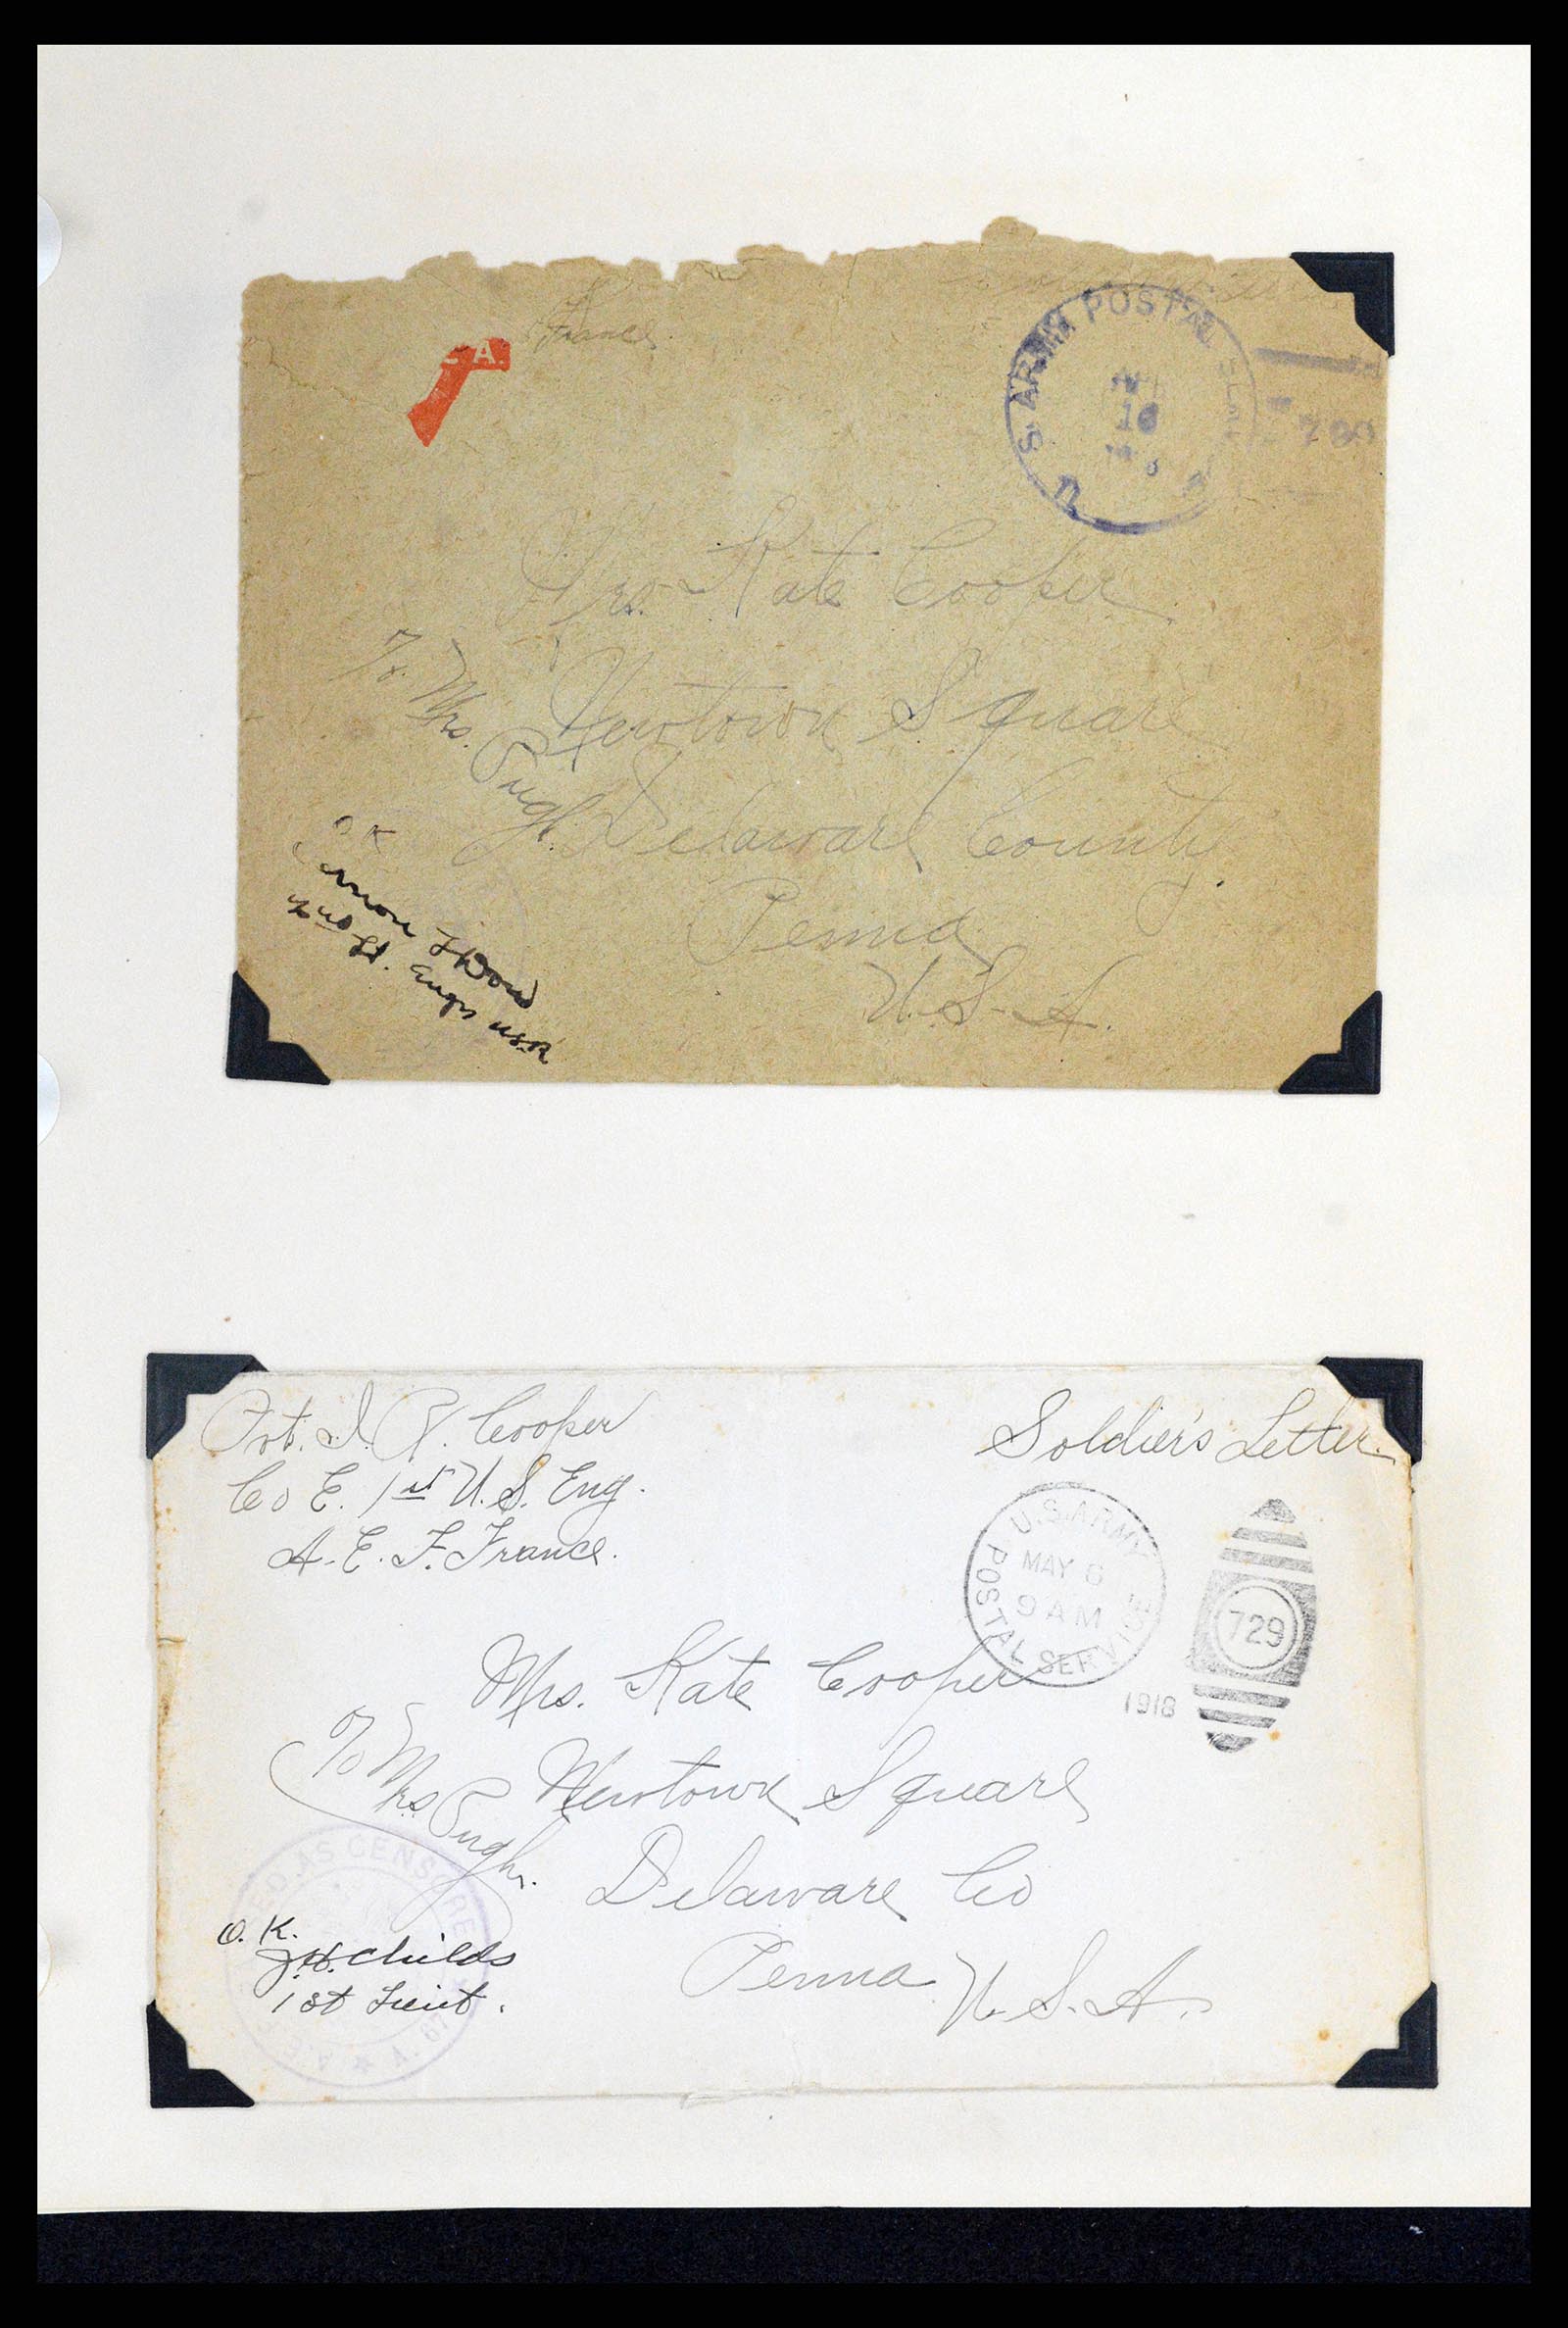 France.
A.
U. S. ARMY POSTAL
16
Mrs. Kate Cooper
Newtown Square
% Mrs. Pugh.
Delaware County.
Penna
U. S. A.
OK
2nd Lt. Engrs USR
Pvt. I. R. Cooper
Co E. 1st U. S. Eng.
A. E. F. France.
Soldier's Letter.
U.S. ARMY POSTAL SERVICE
MAY 6
9 AM
1918
729
Mrs. Kate Cooper
% Mrs Pugh.
Newtown Square
Delaware Co
Penna U. S. A.
AS CENSORED
A.E.F.
O. K.
J.H. Childs
1st Lieut.